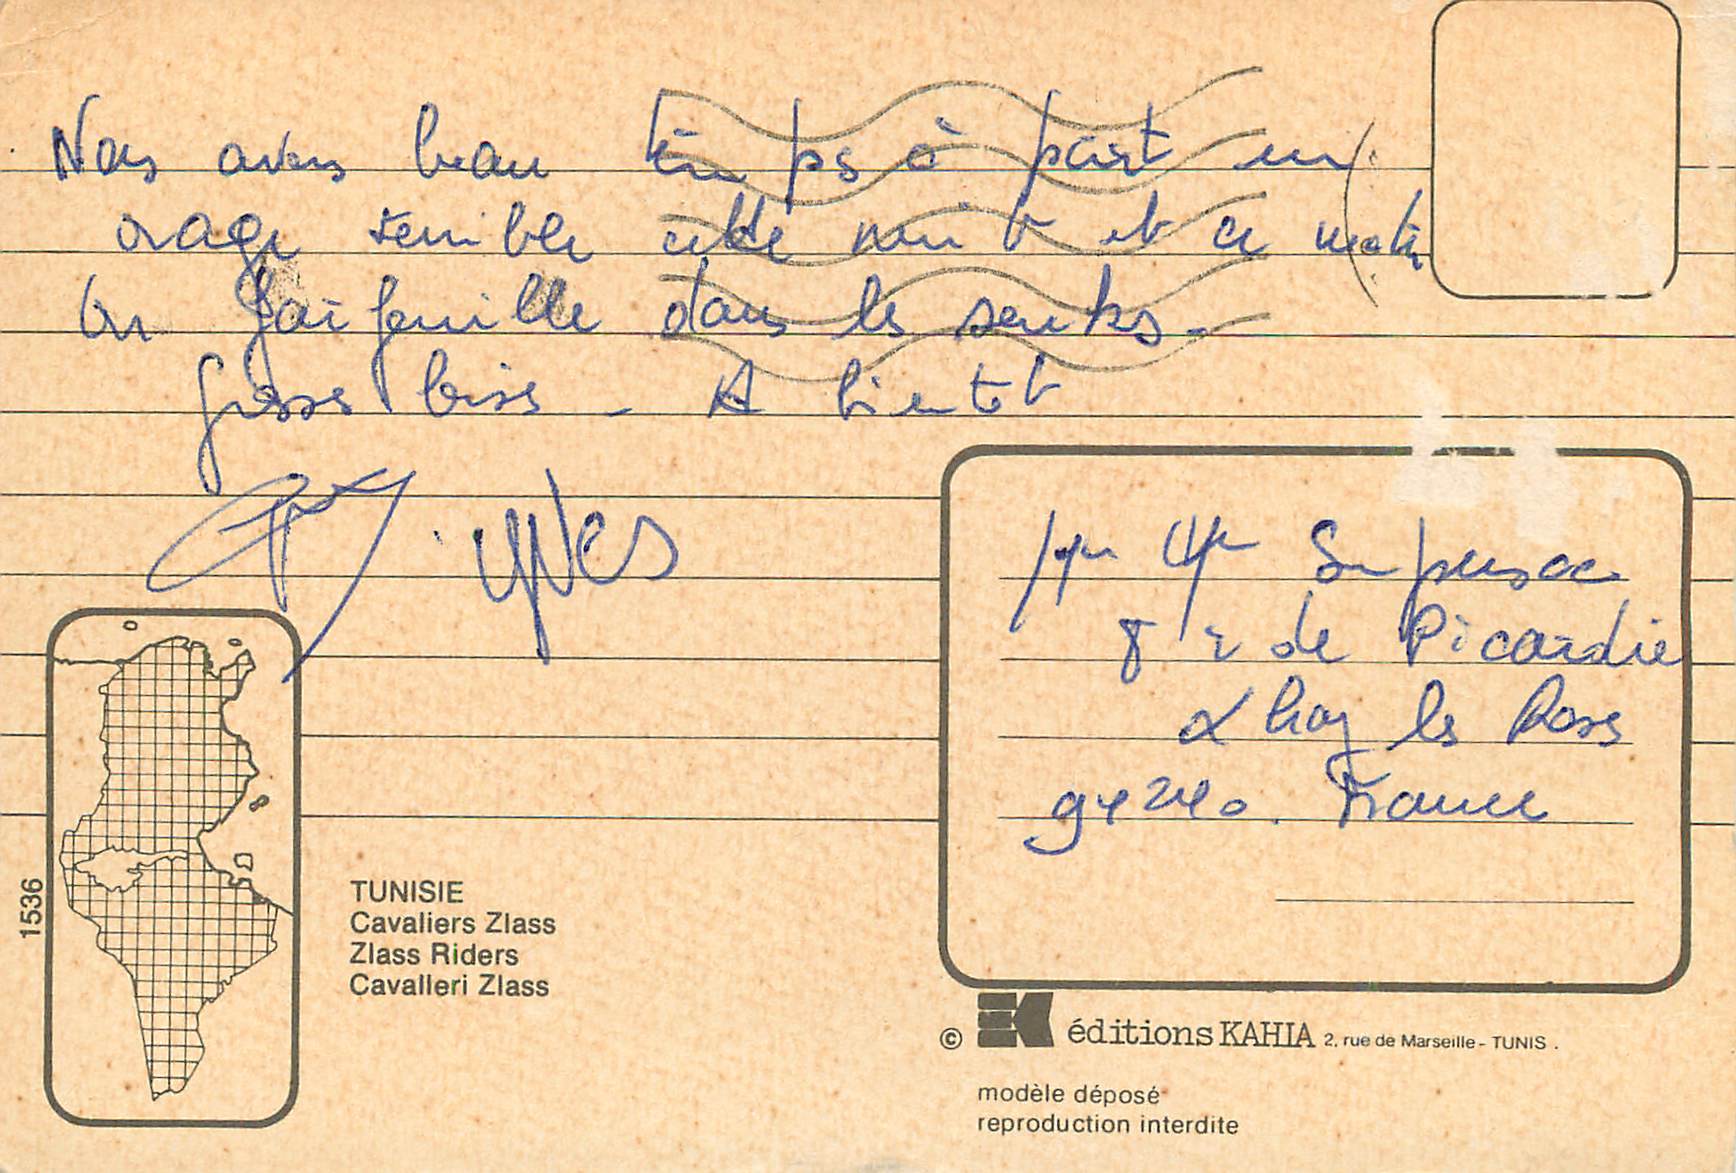 Nous avons beau temps à part un
orage terrible cette nuit et ce matin
on farfouille dans les souks.
Grosses bises - A bientôt
YVES
8 r de Picardie
L'hay les Roses
94240. France
1536
TUNISIE
Cavaliers Zlass
Zlass Riders
Cavalleri Zlass
© éditions KAHIA 2, rue de Marseille - TUNIS .
modèle déposé
reproduction interdite